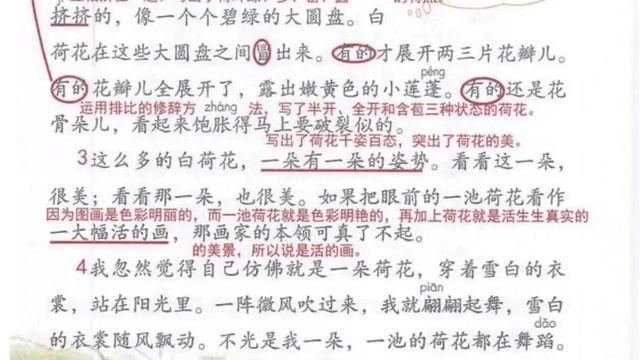 挤挤的，像一个个碧绿的大圆盘。白
荷花在这些大圆盘之间冒出来。有的才展开两三片花瓣儿。
有的花瓣儿全展开了，露出嫩黄色的小莲蓬。有的还是花
péng
运用排比的修辞方法，写了半开、全开和含苞三种状态的荷花。
zhàng
骨朵儿，看起来饱胀得马上要破裂似的。
写出了荷花千姿百态，突出了荷花的美。
3这么多的白荷花，一朵有一朵的姿势。看看这一朵，
很美；看看那一朵，也很美。如果把眼前的一池荷花看作
因为图画是色彩明丽的，而一池荷花就是色彩明艳的，再加上荷花就是活生生真实的
一大幅活的画，那画家的本领可真了不起。
的美景，所以说是活的画。
4我忽然觉得自己仿佛就是一朵荷花，穿着雪白的衣
piān
裳，站在阳光里。一阵微风吹过来，我就翩翩起舞，雪白
dǎo
的衣裳随风飘动。不光是我一朵，一池的荷花都在舞蹈。